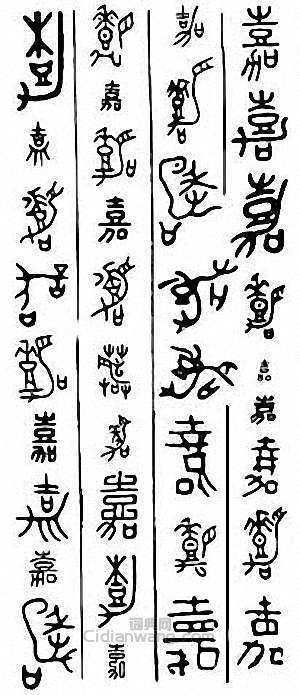 嘉嘉嘉嘉嘉嘉嘉嘉嘉
嘉嘉嘉嘉嘉嘉嘉嘉
嘉嘉嘉嘉嘉嘉嘉嘉嘉嘉
嘉嘉嘉嘉嘉嘉嘉嘉嘉
词典网
Cidianwang.com